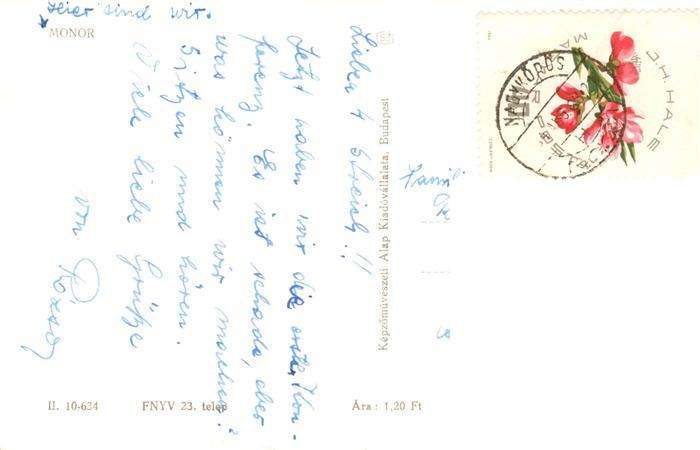 hier sind wir.
MONOR
Lieber 4 !!
Jetzt haben wir die erste Kon-
ferenz. Es ist schade, aber
was können wir machen?
Sitzen und hören.
Viele liebe Grüße
von Rózsa
Képzőművészeti Alap Kiadóvállalata, Budapest
Famili
J.H. HALE
MA
II. 10-634
FNYV 23. telep
Ára : 1,20 Ft